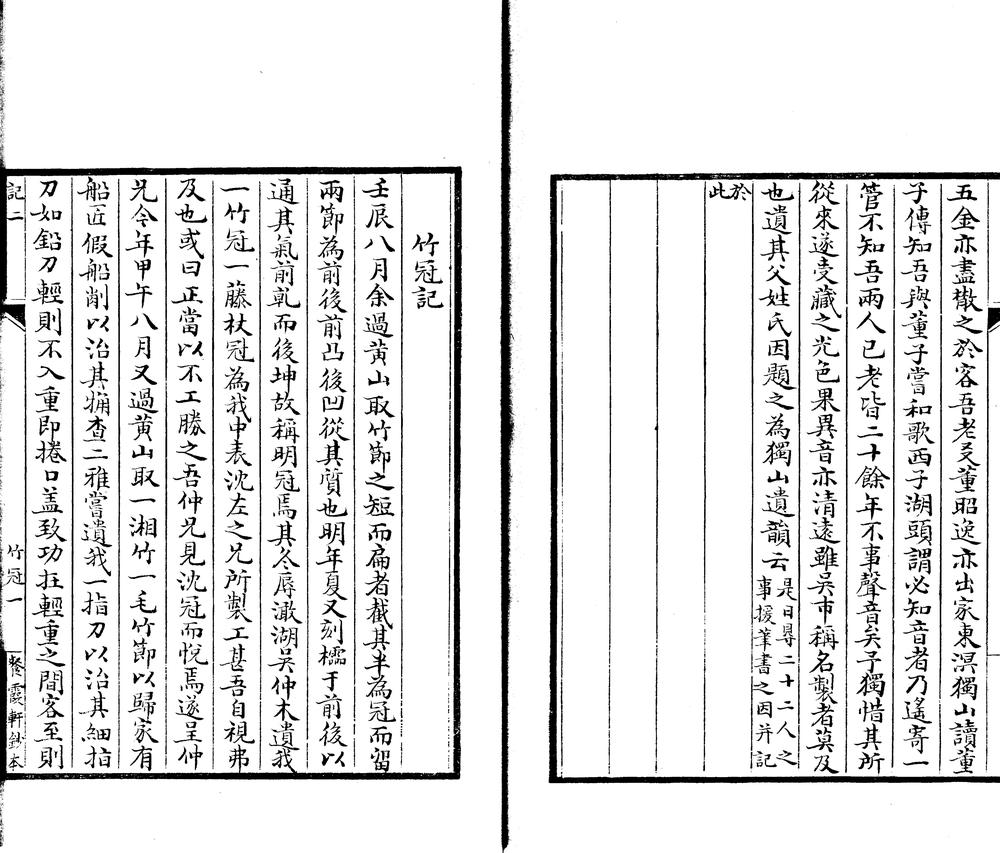 五金亦盡散之於客吾老友董昭逸亦出家東溟獨山讀董
子傳知吾與董子嘗和歌西子湖頭謂必知音者乃遙寄一
管不知吾兩人已老皆二十餘年不事聲音矣予獨惜其所
從來遂受藏之光色果異音亦清遠雖吳市稱名製者莫及
也遺其父姓氏因題之為獨山遺韻云
是日㝷二十二人之
事援筆書之因并記
於
此
竹冠記
壬辰八月余過黃山取竹節之短而扁者截其半為冠而留
兩節為前後前凸後凹從其質也明年夏又刻櫺于前後以
通其氣前乾而後坤故稱明冠焉其冬辱澉湖吳仲木遺我
一竹冠一藤杖冠為我中表沈左之兄所製工甚吾自視弗
及也或曰正當以不工勝之吾仲兄見沈冠而悅焉遂呈仲
兄今年甲午八月又過黃山取一湘竹一毛竹節以歸家有
船匠假船削以治其㾗查二雅嘗遺我一指刀以治其細指
刀如鉛刀輕則不入重即捲口盖致功在輕重之間客至則
記二
竹冠一
餐霞軒鈔本